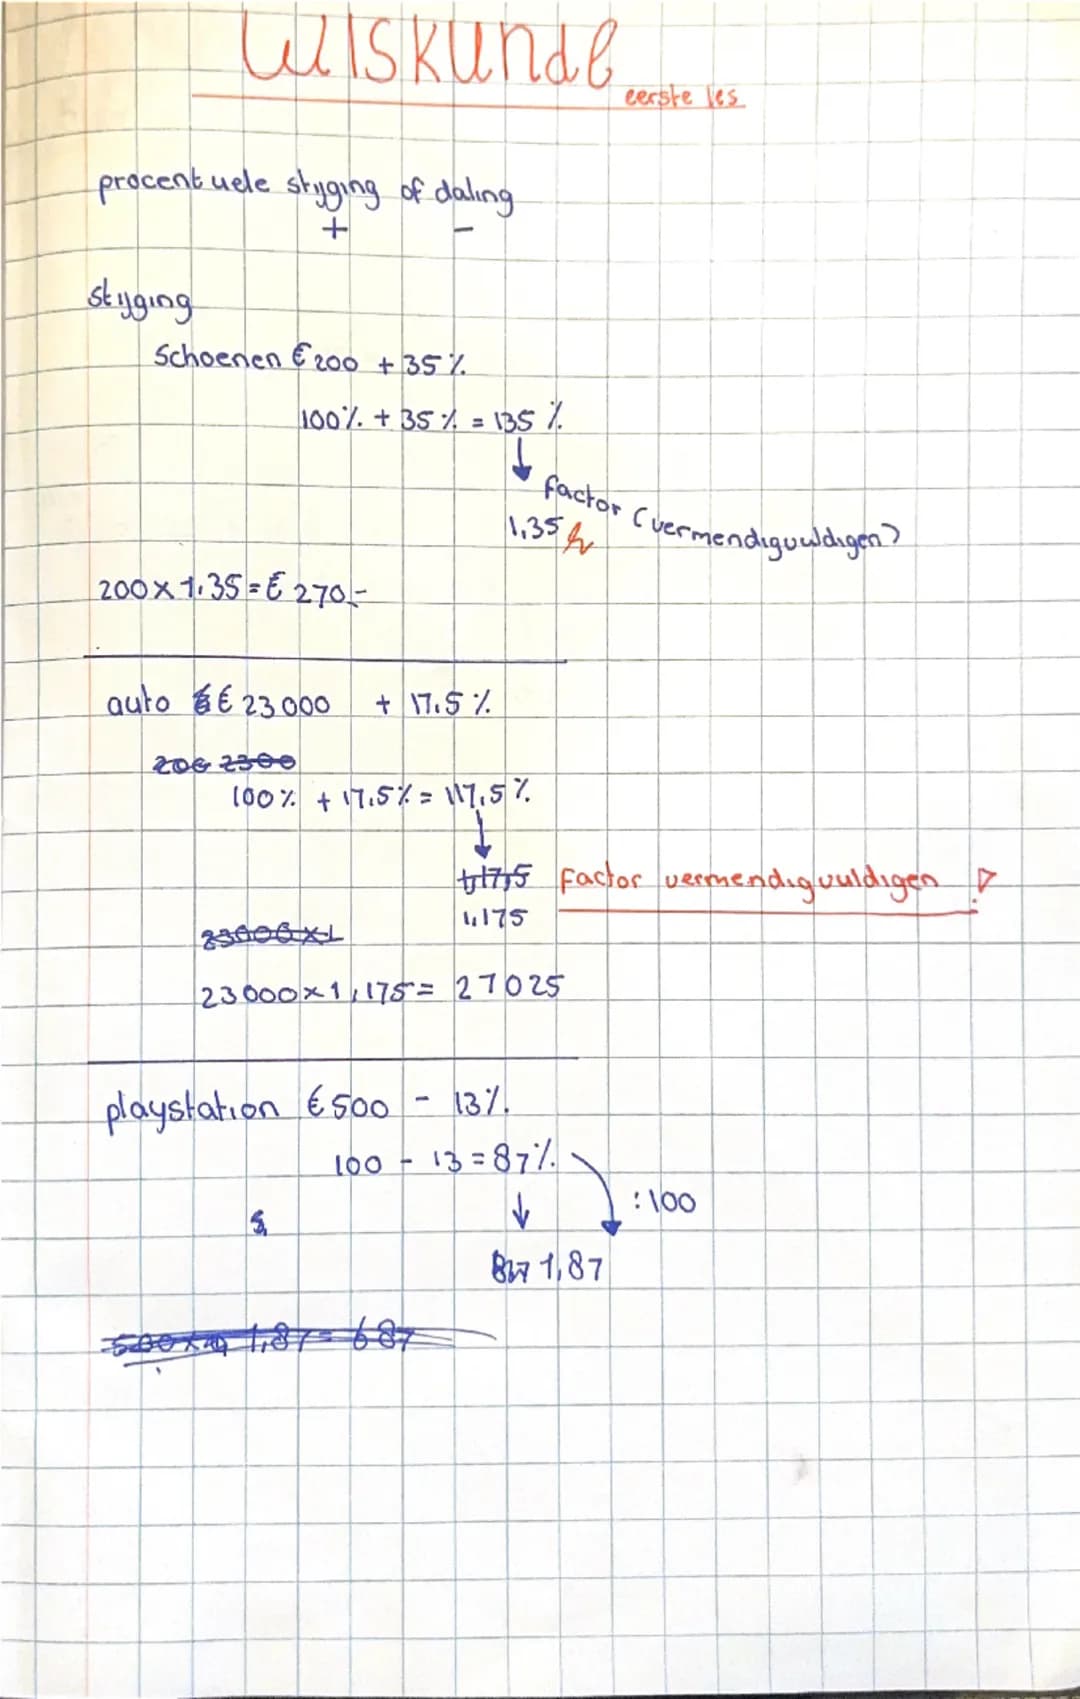 Wiskunde
eerste les
procentuele stijging of daling
+ -
stijging
Schoenen € 200 + 35 %
100% + 35 % = 135 %
factor (vermendiguvuldigen?
1,35
200 x 1.35 = € 270,-
auto € 23 000 + 17.5 %
200 2300
100 % + 17,5 % = 117,5 %
1,17,5 factor vermendiguvuldigen
1,175
23000 x 1
23 000 x 1,175 = 27025
playstation € 500 - 13%.
100 - 13 = 87%.
:100
1,87
1,87 = 687